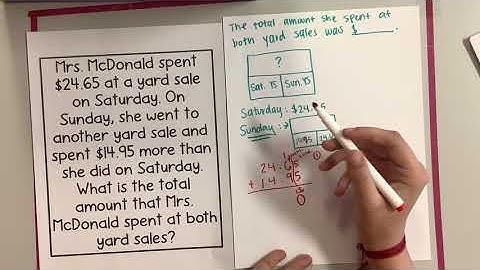 Mrs. McDonald spent
$24.65 at a yard sale
on Saturday. On
Sunday, she went to
another yard sale and
spent $14.95 more than
she did on Saturday.
What is the total
amount that Mrs.
McDonald spent at both
yard sales?
The total amount she spent at
both yard sales was $
?
Sat. YS Sun. YS
Saturday: $24.
Sunday:
24.65
+ 14.95
0